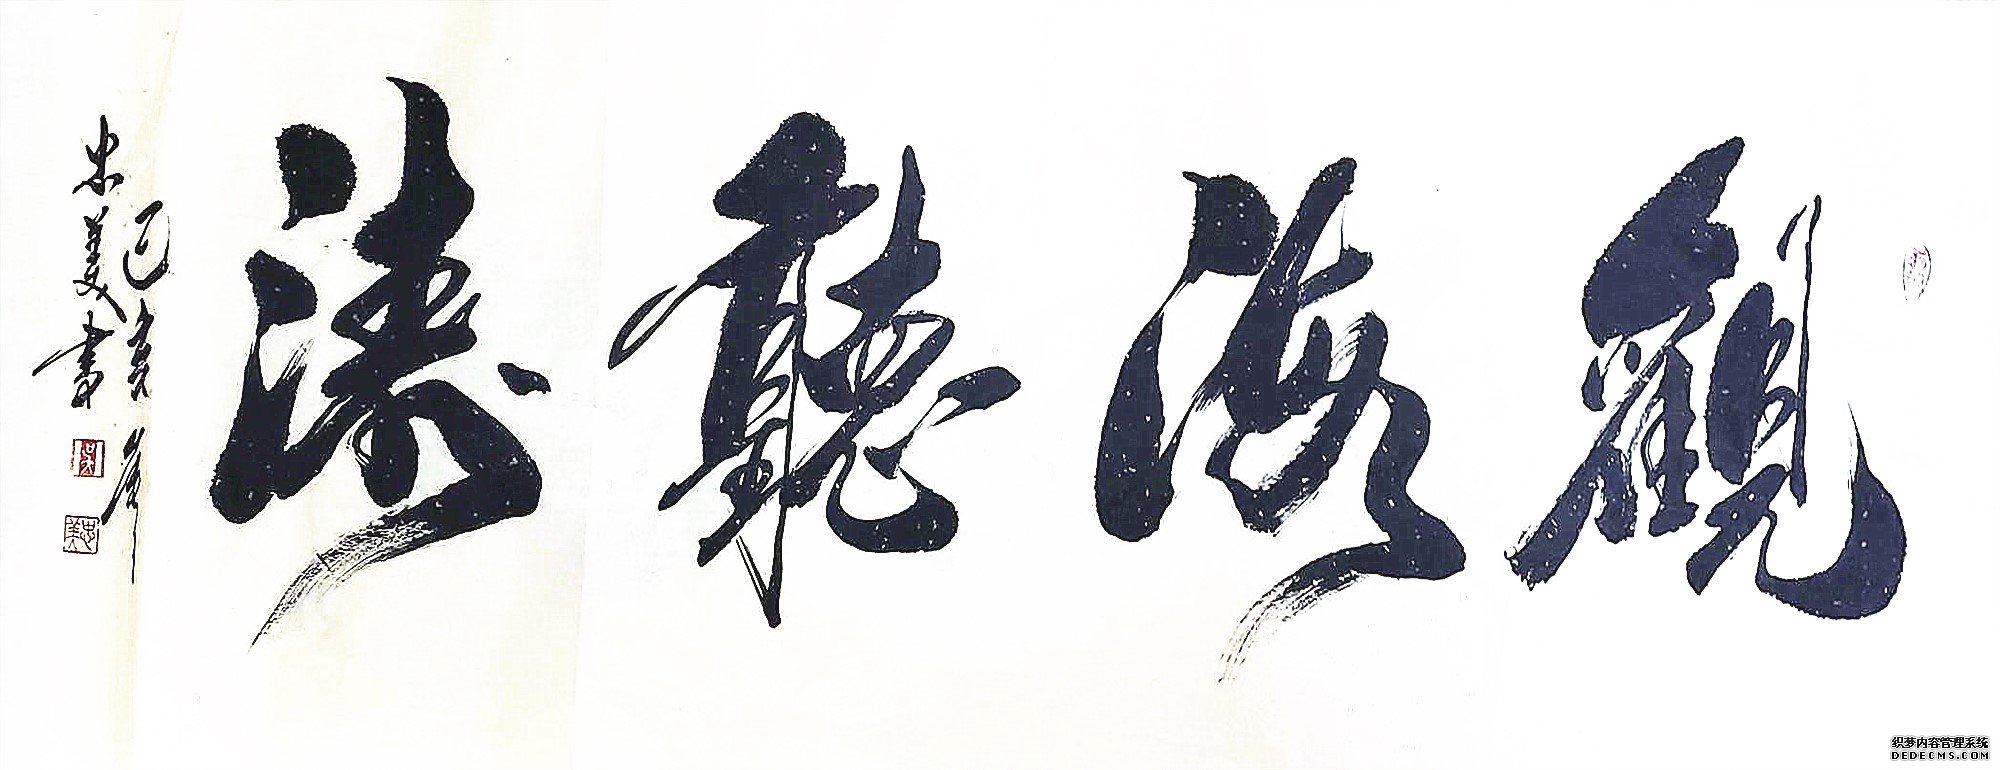 觀海聽濤
己亥年
忠美書
忠美
织梦内容管理系统
DEDECMS.COM